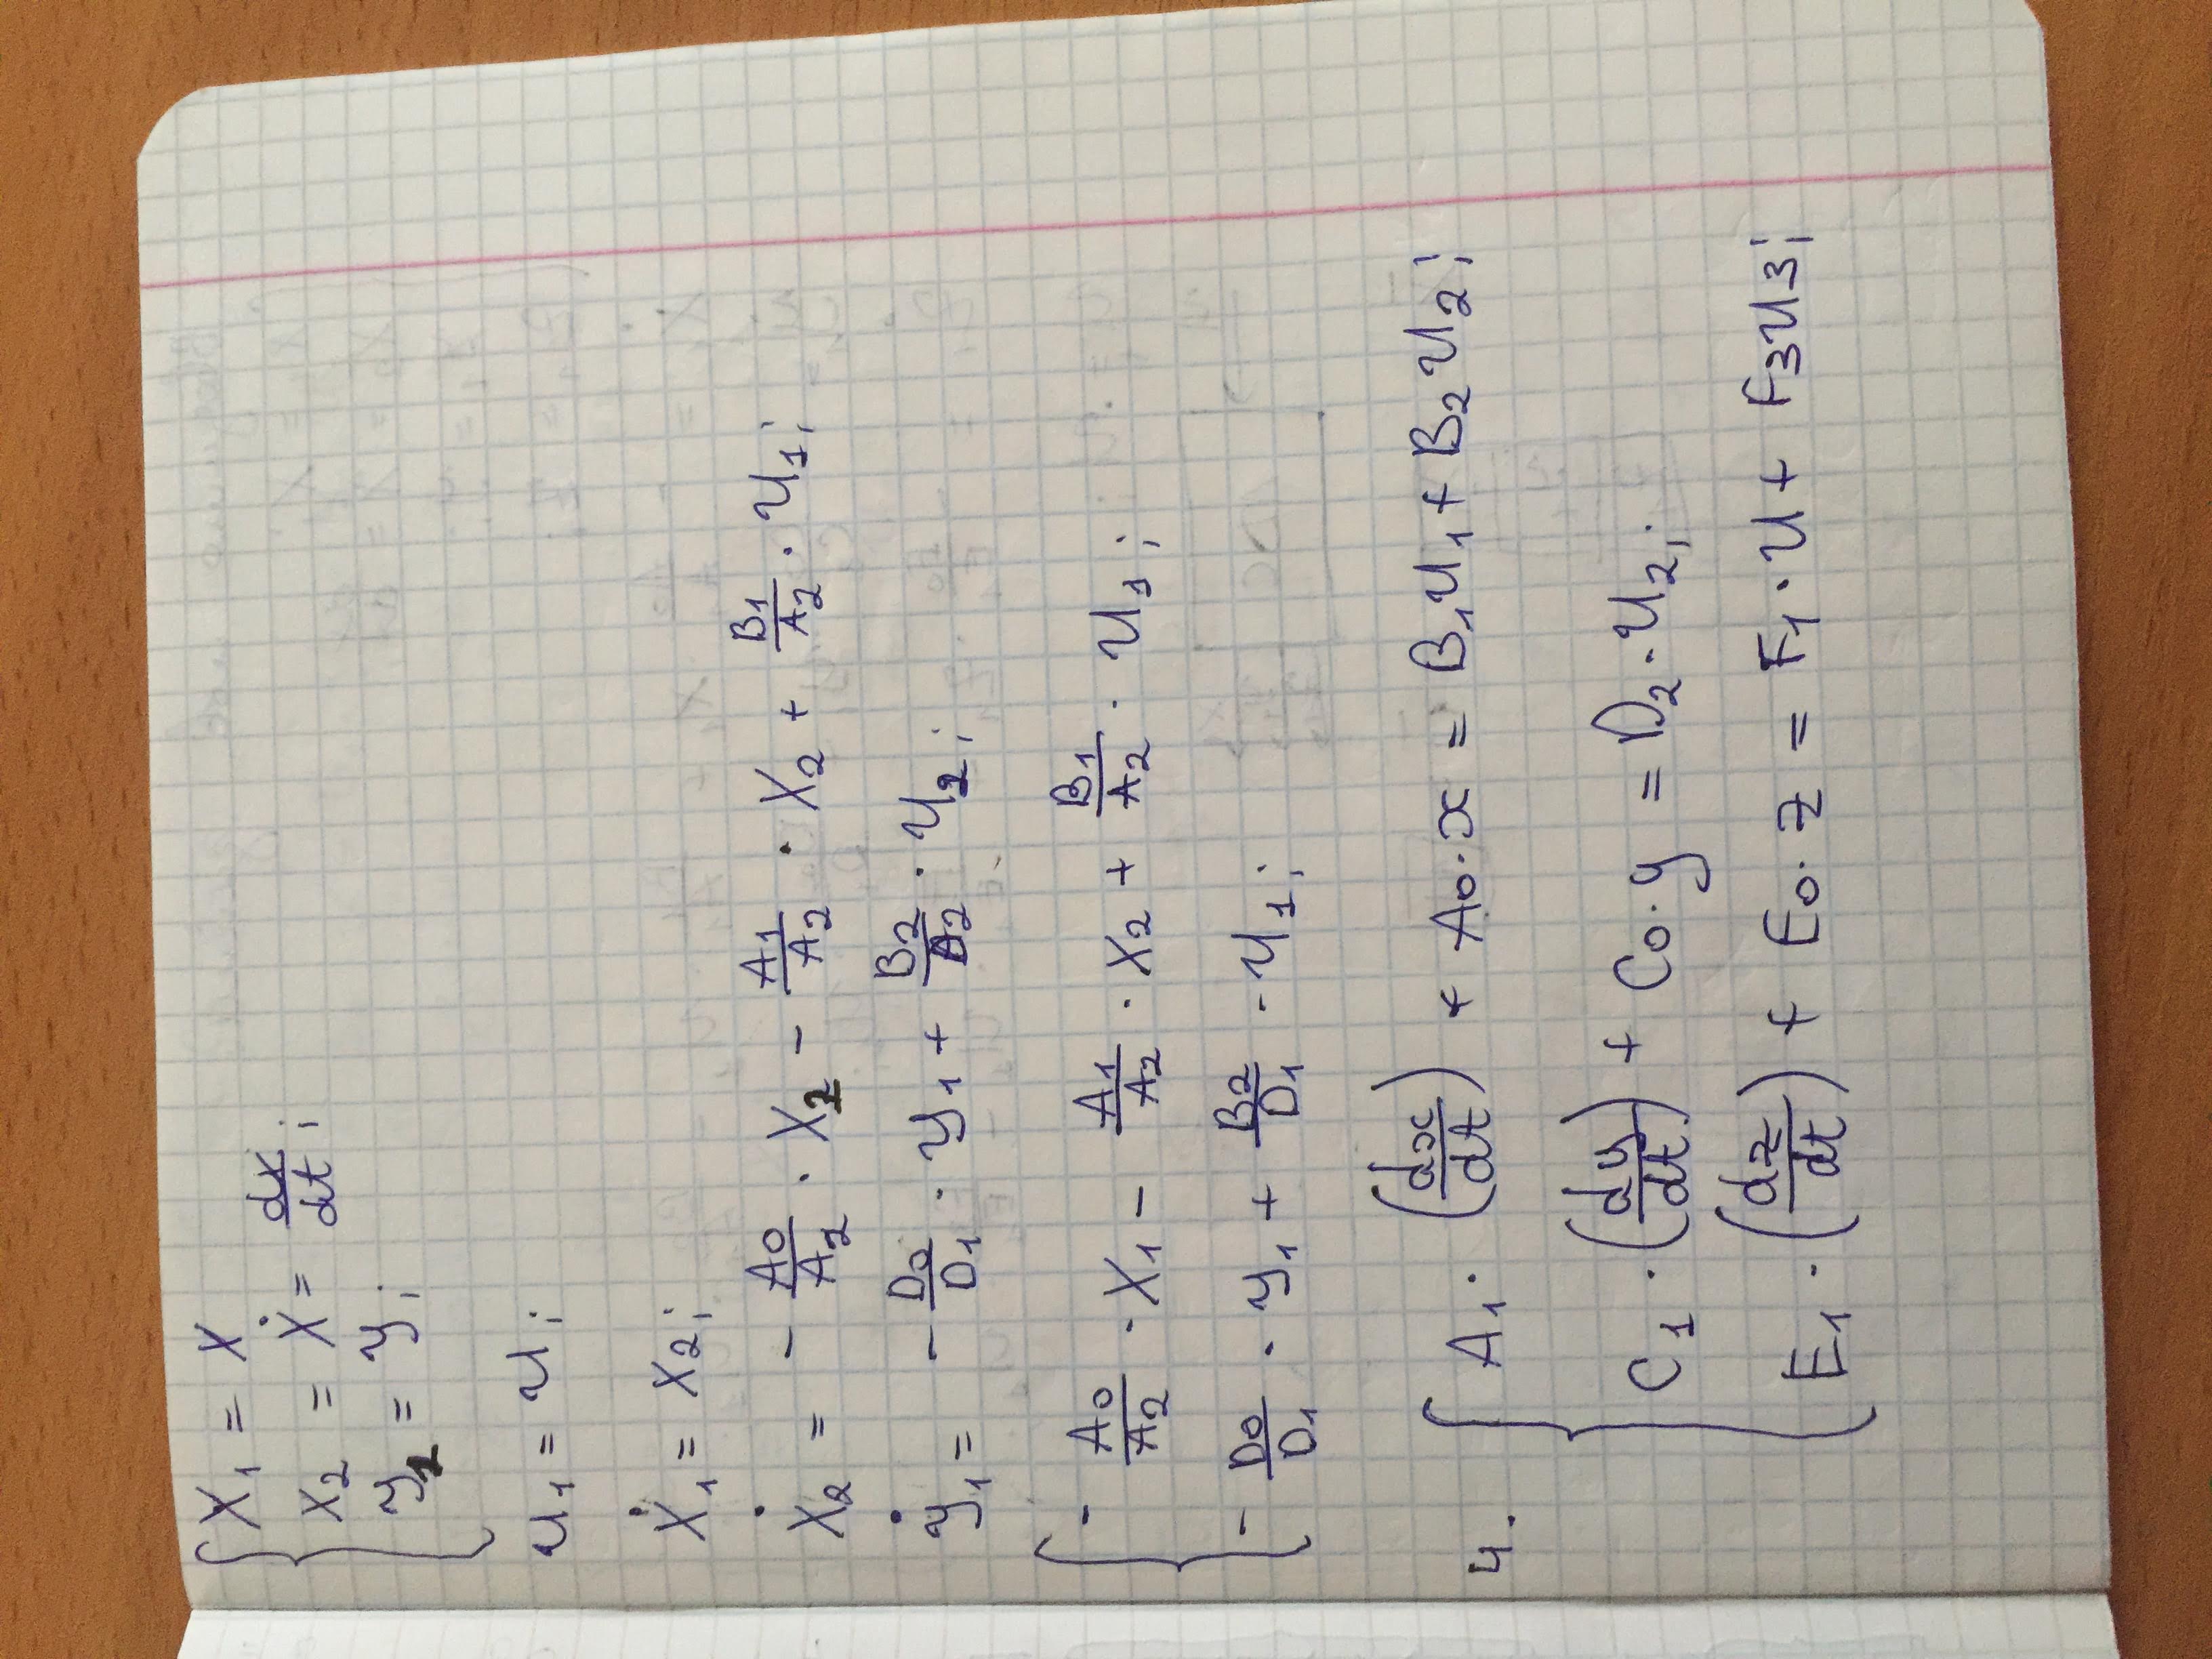 X₁ = X
X₂ = Ẋ = dx/dt;
y₂ = y;
u₁ = u;
Ẋ₁ = X₂;
Ẋ₂ = - A₀/A₂ · X₂ - A₁/A₂ · X₂ + B₁/A₂ · u₁;
ẏ₁ = - D₀/D₁ · y₁ + B₂/D₂ · u₂;
- A₀/A₂ · X₁ - A₁/A₂ · X₂ + B₁/A₂ · u₁;
- D₀/D₁ · y₁ + B₂/D₁ · u₁;
4. A₁ · (dx/dt) + A₀ · x = B₁u₁ + B₂u₂;
C₁ · (dy/dt) + C₀ · y = D₂ · u₂;
E₁ · (dz/dt) + E₀ · z = F₁ · u + F₃u₃;